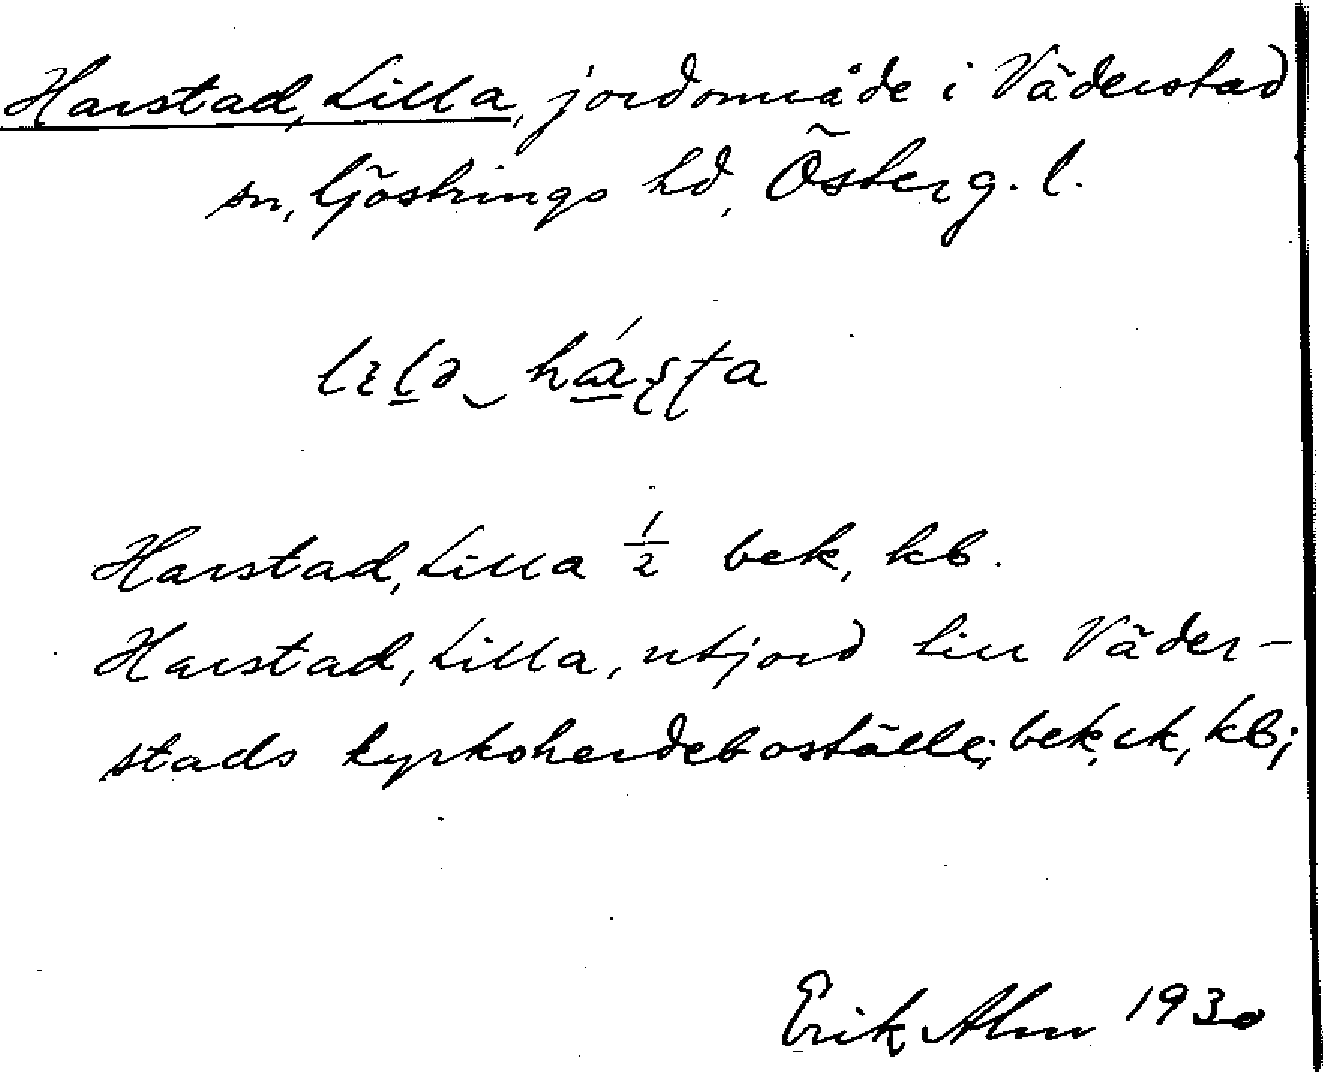 Harstad, Lilla, jordområde i Väderstad
sn, Göstrings hd, Österg. l.
Harstad, Lilla 1/2 bek, kb.
Harstad, Lilla, utjord till Väder-
stads kyrkoherdeboställe; bek, rk, kb;
Erik Alm 1930